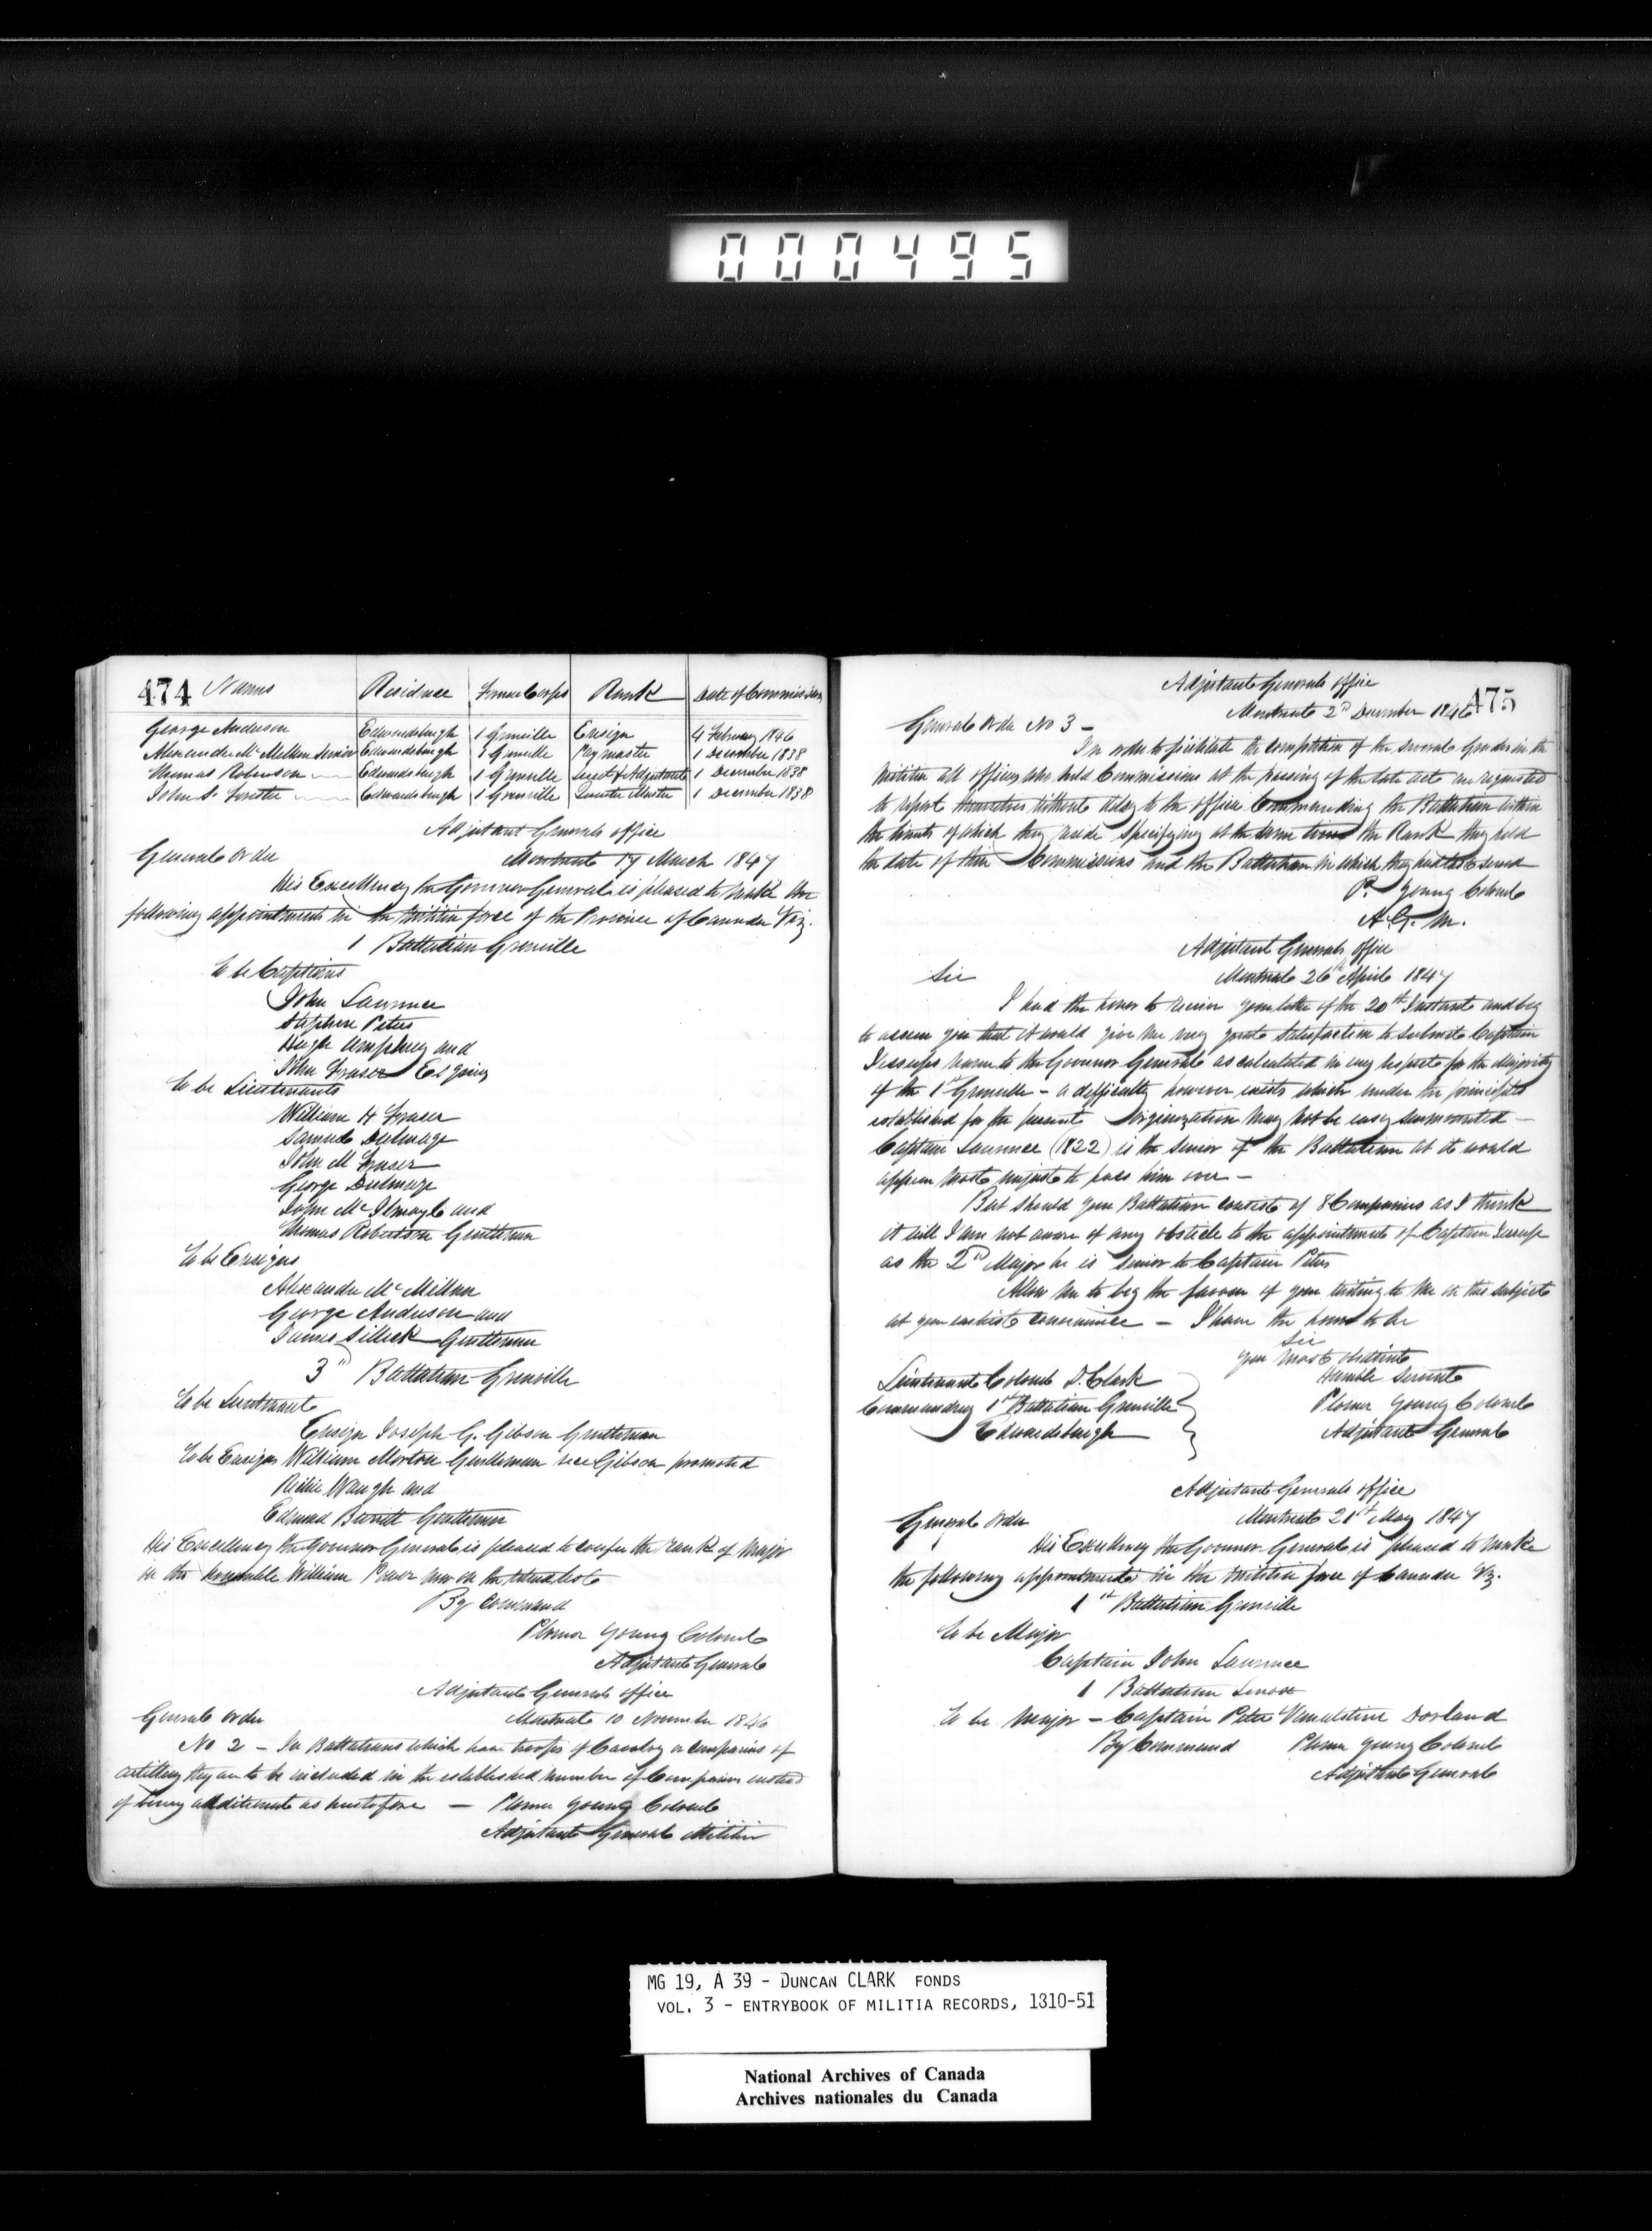 000495
474 Names Residence Former Corps Rank Date of Commission
George Anderson Edwardsburgh 1 Grenville Ensign 4 February 1846
Alexander McMillan Senior Edwardsburgh 1 Grenville Paymaster 1 December 1838
Thomas Robinson Edwardsburgh 1 Grenville Lieut & Adjutant 1 December 1838
John S. Edwardsburgh 1 Grenville Quarter Master 1 December 1838
Adjutant Generals office
General Order Montreal 17 March 1847
His Excellency the Governor General is pleased to make the
following appointments in the Militia force of the Province of Canada Viz.
1 Battalion Grenville
To be Captains
John Lawrence
Stephen Peters
Hugh Umphrey and
John Fraser Esquires
To be Lieutenants
William H Fraser
Samuel Dulmage
John M Fraser
George Dulmage
John McIlmoyle and
Thomas Robertson Gentlemen
To be Ensigns
Alexander McMillan
George Anderson and
James Sillick Gentlemen
3rd Battalion Grenville
To be Lieutenant
Ensign Joseph G. Gibson Gentleman
To be Ensigns William Morton Gentleman vice Gibson promoted
Waugh and
Edmund Barrett Gentlemen
His Excellency the Governor General is pleased to confer the rank of Major
on the honorable William now on the list
By command
Plomer Young Colonel
Adjutant General
Adjutant Generals office
General Order Montreal 10 November 1846
No 2 - In Battalions which have troops of Cavalry or companies of
artillery they are to be included in the established number of Companies instead
of being additional as heretofore - Plomer Young Colonel
Adjutant General Militia
Adjutant Generals office
475
Montreal 2nd December 1846
General Order No 3 -
In order to facilitate the completion of the several Grades in the
Militia all officers who held Commissions at the passing of the late act are requested
to report themselves without delay to the officer Commanding the Battalion within
the limits of which they reside specifying at the same time the Rank they held
the date of their Commissions and the Battalion in which they had last served
P. Young Colonel
A. G. M.
Adjutant Generals office
Sir Montreal 26th April 1847
I had the honor to receive your letter of the 20th Instant and beg
to assure you that it would give me very great satisfaction to submit Captain
Jessups name to the Governor General as calculated in every respect for the Majority
of the 1st Grenville - a difficulty however exists which under the principles
established for the present organization may not be easy surmounted -
Captain Lawrence (1822) is the senior of the Battalion at it would
appear most unjust to pass him over -
But should your Battalion consist of 8 Companies as I think
it will I am not aware of any obsticle to the appointment of Captain Jessup
as the 2nd Major he is Senior to Captain Peters
Allow me to beg the favour of your writing to me on this subject
at your earliest convenience - I have the honor to be
Sir
your most obedient
Lieutenant Colonel D. Clark Humble Servant
Commanding 1st Battalion Grenville Plomer Young Colonel
Edwardsburgh Adjutant General
Adjutant Generals office
General Order Montreal 21st May 1847
His Excellency the Governor General is pleased to make
the following appointments in the Militia force of Canada Viz.
1st Battalion Grenville
To be Major
Captain John Lawrence
1 Battalion Lenox
To be Major - Captain Peter Vanalstine Dorland
By Command Plomer Young Colonel
Adjutant General
MG 19, A 39 - DUNCAN CLARK FONDS
VOL. 3 - ENTRYBOOK OF MILITIA RECORDS, 1810-51
National Archives of Canada
Archives nationales du Canada